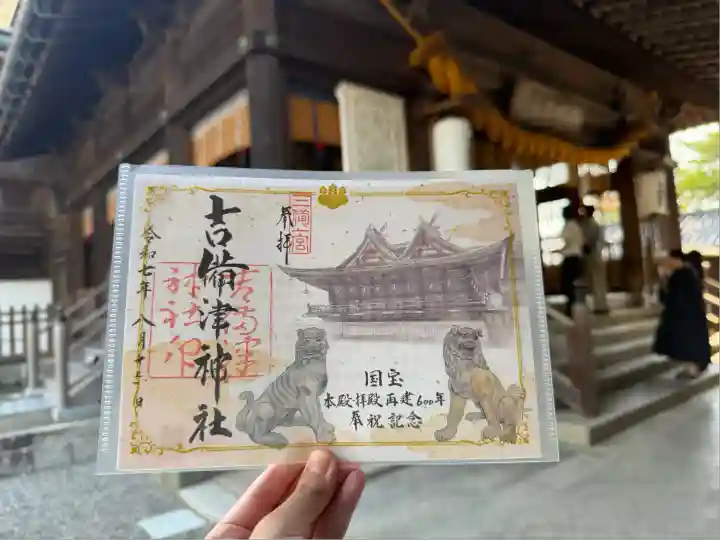 三備一宮
奉拝
吉備津神社
令和七年八月十二日
国宝
本殿・拝殿再建600年
奉祝記念